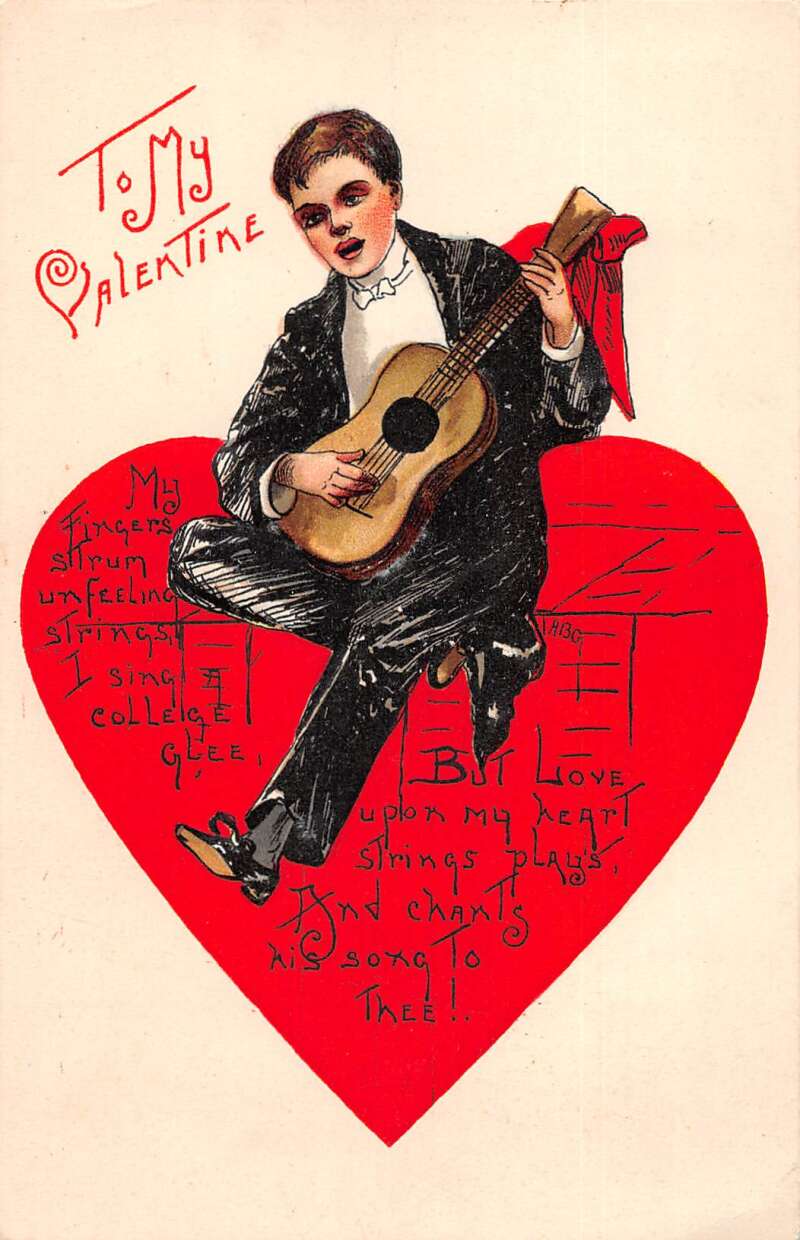 To My
Valentine
My
Fingers
strum
unfeeling
strings,
I sing a
college
glee,
But Love
upon my heart
strings plays,
And chants
his song to
thee!.